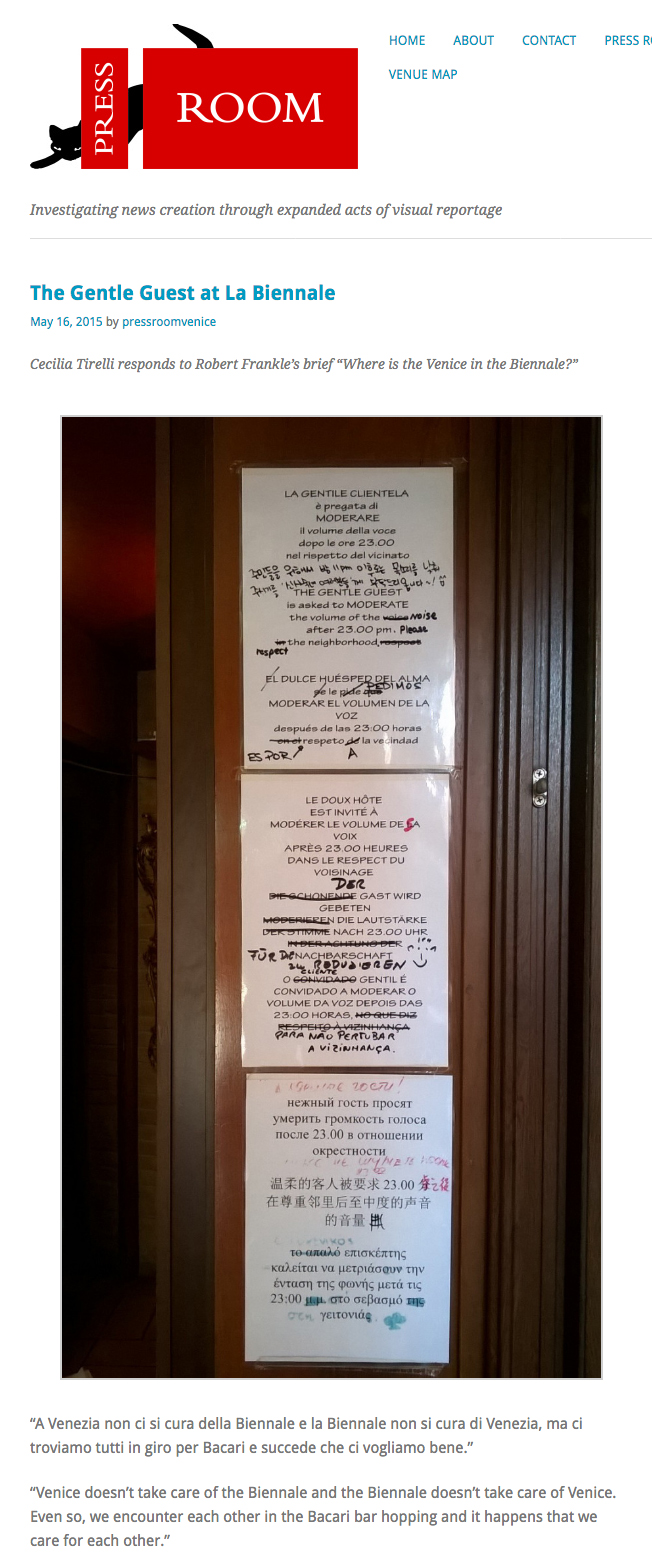 PRESS
ROOM
HOME ABOUT CONTACT PRESS RO
VENUE MAP
Investigating news creation through expanded acts of visual reportage
The Gentle Guest at La Biennale
May 16, 2015 by pressroomvenice
Cecilia Tirelli responds to Robert Frankle’s brief “Where is the Venice in the Biennale?”
LA GENTILE CLIENTELA
è pregata di
MODERARE
il volume della voce
dopo le ore 23.00
nel rispetto del vicinato
THE GENTLE GUEST
is asked to MODERATE
the volume of the voice NOISE
after 23.00 pm. Please
in the neighborhood, respect
respect
EL DULCE HUÉSPED DEL ALMA
se le pide que PEDIMOS
MODERAR EL VOLUMEN DE LA
VOZ
después de las 23:00 horas
en el respeto de la vecindad
ES POR A
LE DOUX HÔTE
EST INVITÉ À
MODÉRER LE VOLUME DE SA
VOIX
APRÈS 23.00 HEURES
DANS LE RESPECT DU
VOISINAGE
DER
DIE SCHONENDE GAST WIRD
GEBETEN
MODERIEREN DIE LAUTSTÄRKE
DER STIMME NACH 23.00 UHR
IN DER ACHTUNG DER
FÜR DIE NACHBARSCHAFT
ZU REDUZIEREN
CLIENTE
O CONVIDADO GENTIL É
CONVIDADO A MODERAR O
VOLUME DA VOZ DEPOIS DAS
23:00 HORAS, NO QUE DIZ
RESPEITO À VIZINHANÇA
PARA NÃO PERTUBAR
A VIZINHANÇA.
нежный гость просят
умерить громкость голоса
после 23.00 в отношении
окрестности
温柔的客人被要求 23.00
在尊重邻里后至中度的声音
的音量
το απαλό επισκέπτης
καλείται να μετριάσουν την
ένταση της φωνής μετά τις
23:00 μ.μ. στο σεβασμό της
γειτονιάς
“A Venezia non ci si cura della Biennale e la Biennale non si cura di Venezia, ma ci
troviamo tutti in giro per Bacari e succede che ci vogliamo bene.”
“Venice doesn’t take care of the Biennale and the Biennale doesn’t take care of Venice.
Even so, we encounter each other in the Bacari bar hopping and it happens that we
care for each other.”